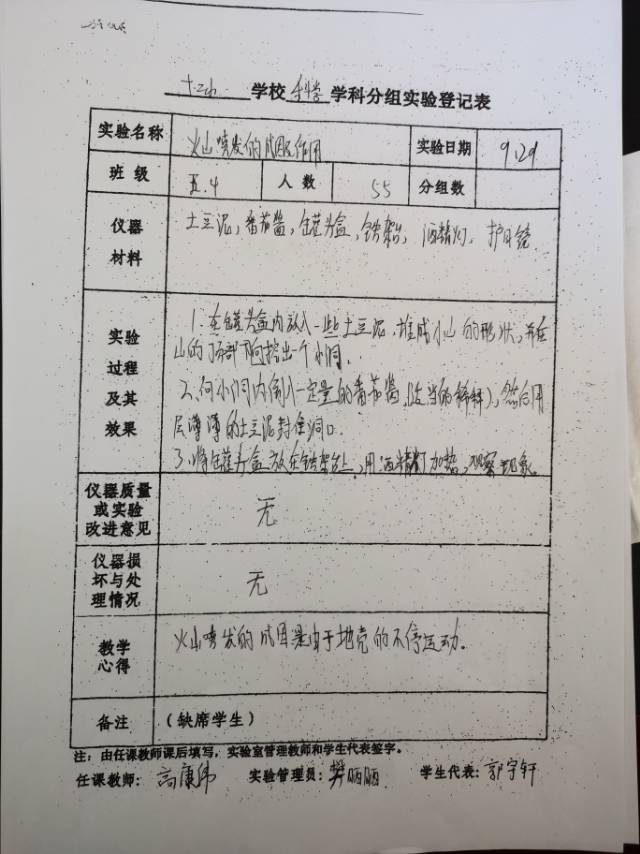 十二中 学校 科学 学科分组实验登记表
实验名称 火山喷发的成因及作用 实验日期 9.29
班 级 五.4 人 数 55 分组数
仪器材料 土豆泥，番茄酱，罐头盒，铁架台，酒精灯，护目镜
实验过程及其效果
1.在罐头盒内放入一些土豆泥，堆成小山的形状，并在
山的顶部向下挖出一个小洞。
2.向小洞内倒入一定量的番茄酱，(适当的稀释)，然后用
层薄薄的土豆泥封住洞口
3.将罐头盒放在铁架台上，用酒精灯加热，观察现象
仪器质量或实验改进意见 无
仪器损坏与处理情况 无
教学心得 火山喷发的成因是由于地壳的不停运动。
备注 （缺席学生）
注：由任课教师课后填写，实验室管理教师和学生代表签字。
任课教师：高康伟 实验管理员：樊丽丽 学生代表：郭宇轩